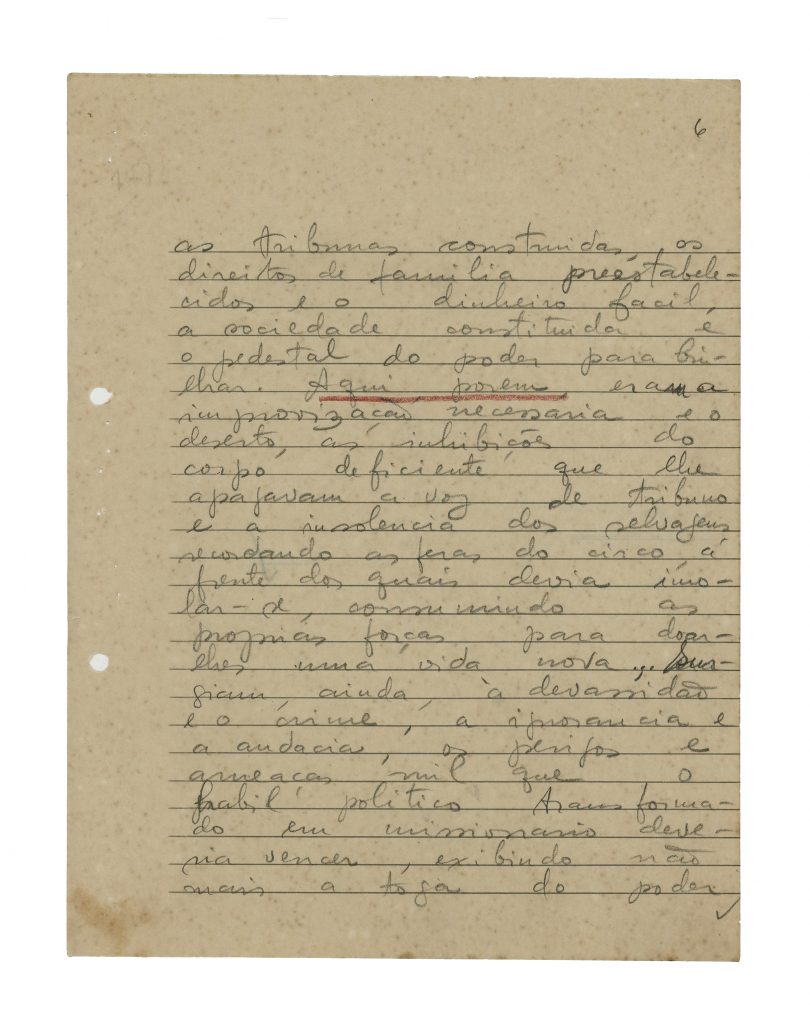 6
as tribunas construidas, os
direitos de familia preestabele-
cidos e o dinheiro facil,
a sociedade constituida é
o pedestal do poder para bri-
lhar. Aqui porem, era a
improvização necessaria e o
deserto, as inhibições do
corpo deficiente que lhe
apagavam a voz de tribuno
e a insolencia dos selvagens
recordando as feras do circo, á
frente dos quais devia imo-
lar-se, consumindo as
proprias forças para doar-
lhes uma vida nova... Sur-
giam, ainda, a devassidão
e o crime, a ignorancia e
a audacia, os perigos e
ameaças mil que o
habil politico transforma-
do em missionario deve-
ria vencer, exibindo não
mais a toga do poder